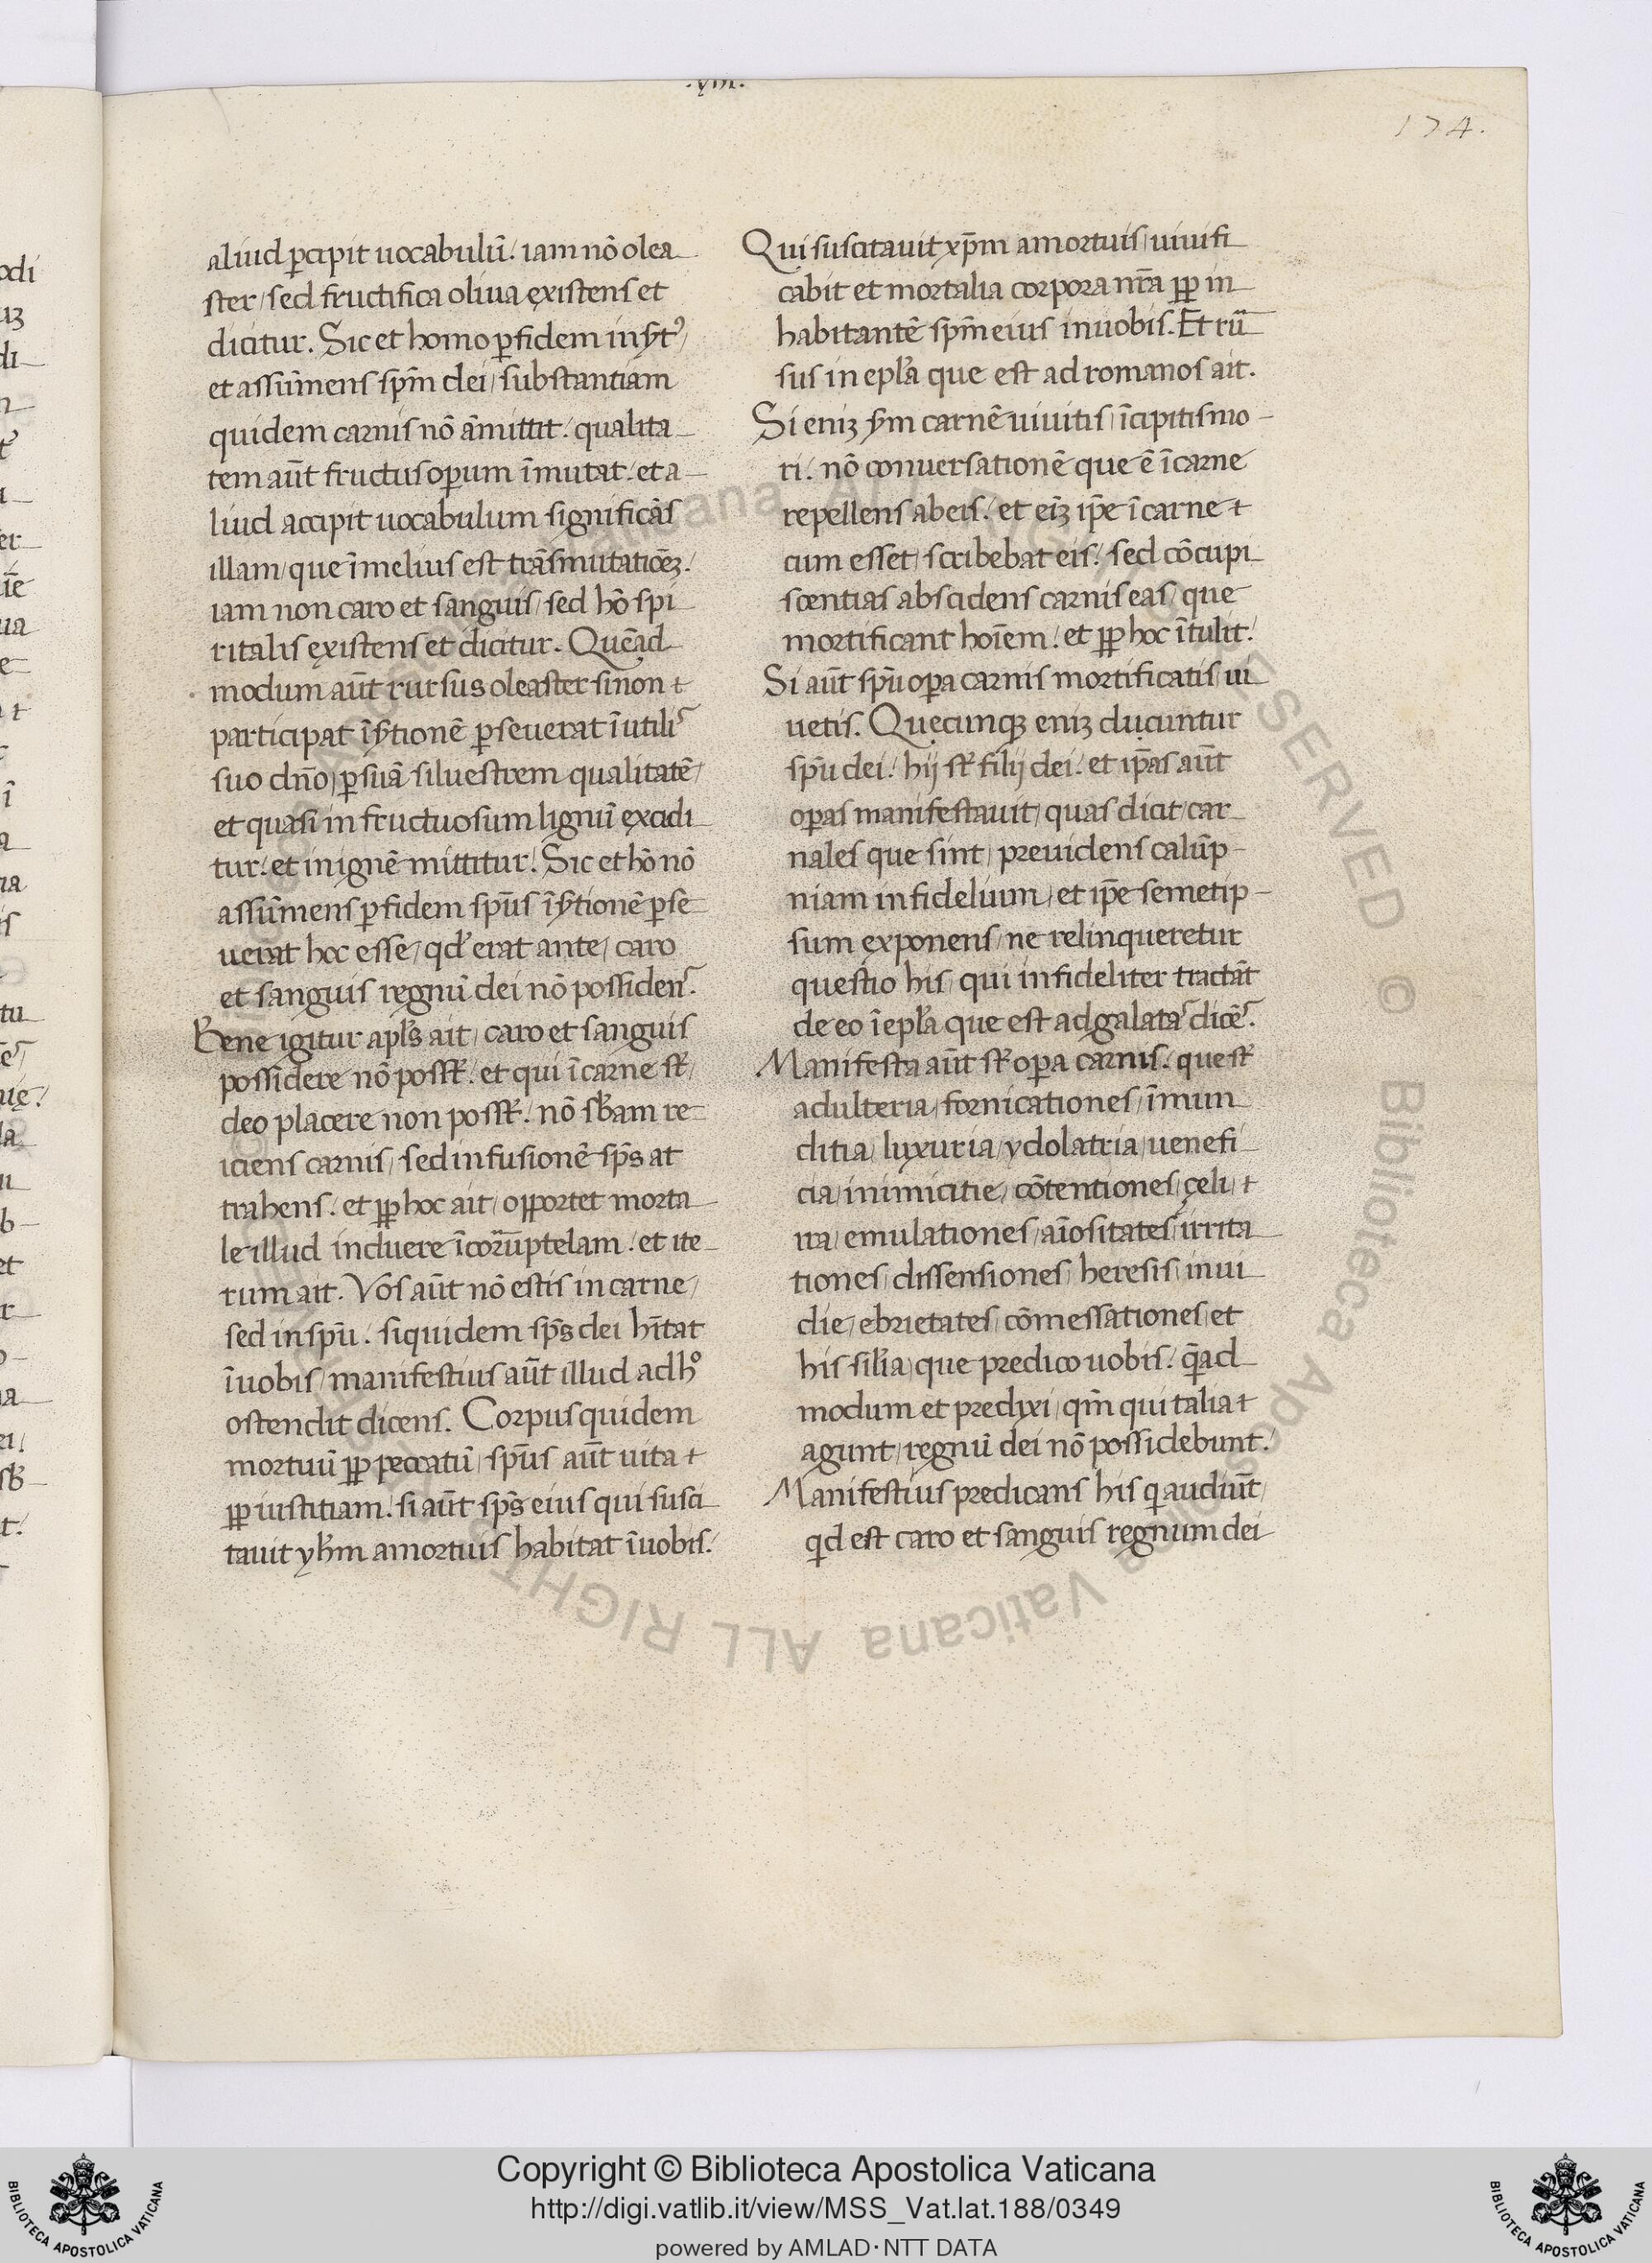 .xviii.
174.
aliud ꝑcipit uocabulū. iam nō olea
ster / sed fructifica oliua existens et
dicitur. Sic et homo ꝑ fidem insertꝰ /
et assūmens sp̄m dei / substantiam
quidem carnis nō āmittit. qualita
tem aūt fructus oꝑum īmutat. et a-
liud accipit uocabulum significās
illam / que ī melius est trāsmutatiōeꝫ.
iam non caro et sanguis / sed hō spi
ritalis existens et dicitur. Quēad
modum aūt rursus oleaster si non
participat īsertionē ꝑseuerat īutilis
suo dn̄o / ꝑ suā siluestrem qualitatē /
et quasi infructuosum lignū excidi
tur. et in ignē mittitur. Sic et hō nō
assūmens ꝑ fidem sp̄us īsertionē ꝑse
uerat hoc esse / qd̓ erat ante / caro
et sanguis regnū dei nō possidens.
Bene igitur apl̓s ait / caro et sanguis
possidere nō possūt. et qui ī carne sūt /
deo placere non possūt. nō sb̓am re-
iciens carnis / sed infusionē sp̄s at
trahens. et ꝓp hoc ait / opportet morta
le illud induere īcorūptelam. et ite
rum ait. Vos aūt nō estis in carne /
sed in sp̄u. siquidem sp̄s dei hītat
ī uobis / manifestius aūt illud adhᵒ
ostendit dicens. Corpus quidem
mortuū ꝓp peccatū / sp̄us aūt uita
ꝓp iustitiam. si aūt sp̄s eius qui susci
tauit yh̓m amortuis habitat ī uobis.
Qui suscitauit xp̄m amortuis / uiuifi
cabit et mortalia corpora nr̄a ꝓp in
habitantē sp̄m eius in uobis. Et rū
sus in epl̓a que est ad romanos ait.
Si eniꝫ sm̄ carnē uiuitis / īcipitis mo-
ri. nō conuersationē que ē ī carne
repellens ab eis. et eīꝫ ip̄e ī carne
cum esset / scribebat eis. sed cōcupi
scentias abscidens carnis eas / que
mortificant hoīem. et ꝓp hoc ītulit.
Si aūt sp̄u oꝑa carnis mortificatis / ui
uetis. Quecunqꝫ eniꝫ ducuntur
sp̄u dei. hij sūt filij dei. et ip̄as aūt
oꝑas manifestauit / quas dicit / car
nales que sint / preuidens calūp-
niam infidelium / et ip̄e semetip-
sum exponens / ne relinqueretur
questio his / qui infideliter tractāt
de eo ī epl̓a que est ad galatas dicēs.
Manifesta aūt sūt oꝑa carnis. que sūt
adulteria / fornicationes / īmun
ditia / luxuria / ydolatria / uenefi
cia / inimicitie / cōtentiones / çeli /
ira / emulationes / aīositates / irrita
tiones / dissensiones / heresis / inui
die / ebrietates / cōmessationes / et
his sil̓ia / que predico uobis. quēad
modum et predixi / qm̄ qui talia
agunt / regnū dei nō possidebunt.
Manifestius predicans his qi audiūt /
qd est caro et sanguis regnum dei
Copyright © Biblioteca Apostolica Vaticana
http://digi.vatlib.it/view/MSS_Vat.lat.188/0349
powered by AMLAD·NTT DATA